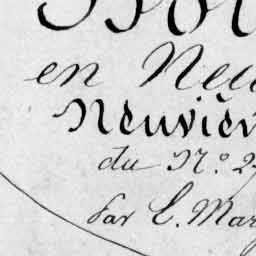 en Neu
Neuvièm
du N.º 2
Par L. Mar